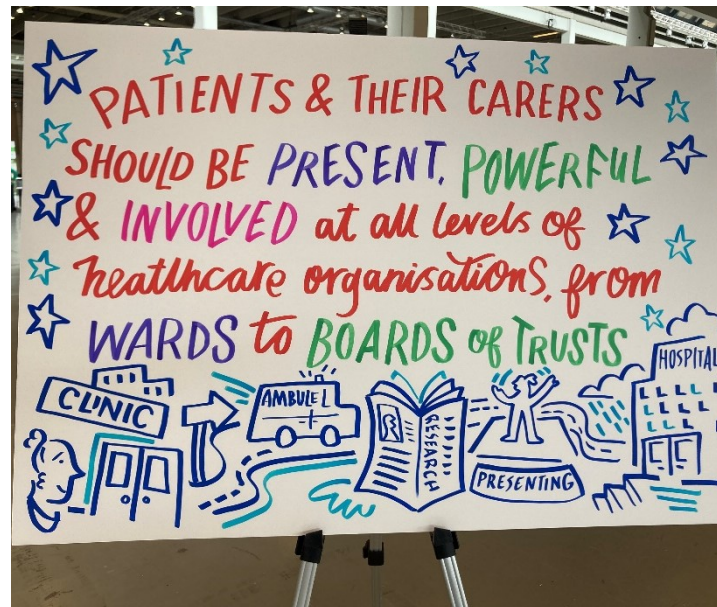 PATIENTS & THEIR CARERS
SHOULD BE PRESENT, POWERFUL
& INVOLVED at all levels of
heatlhcare organisations, from
WARDS to BOARDS of TRUSTS
HOSPITAL
CLINIC
AMBULEL
RESEARCH
PRESENTING